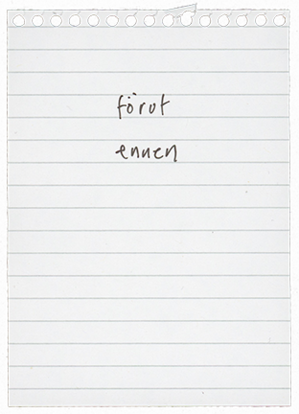 förut
ennen